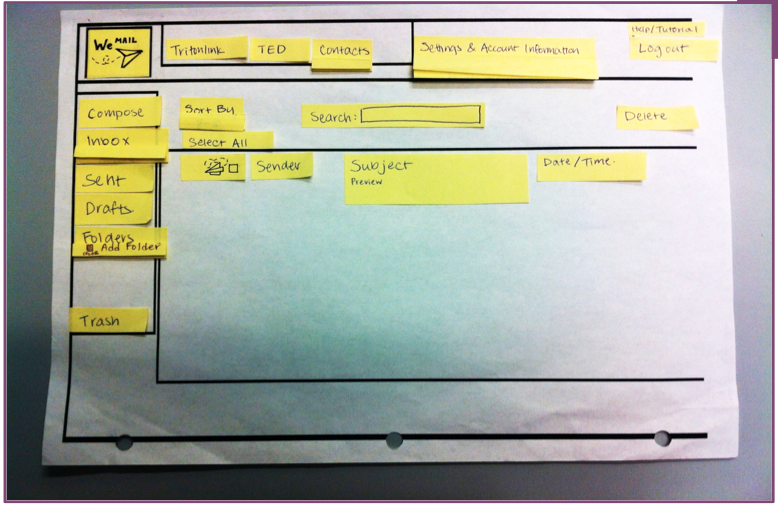 We MAIL
Tritonlink
TED
Contacts
Settings & Account Information
Help/Tutorial
Log out
Compose
Inbox
Sent
Drafts
Folders
Add Folder
Trash
Sort By
Select All
Search:
Delete
Sender
Subject
Preview
Date/Time.